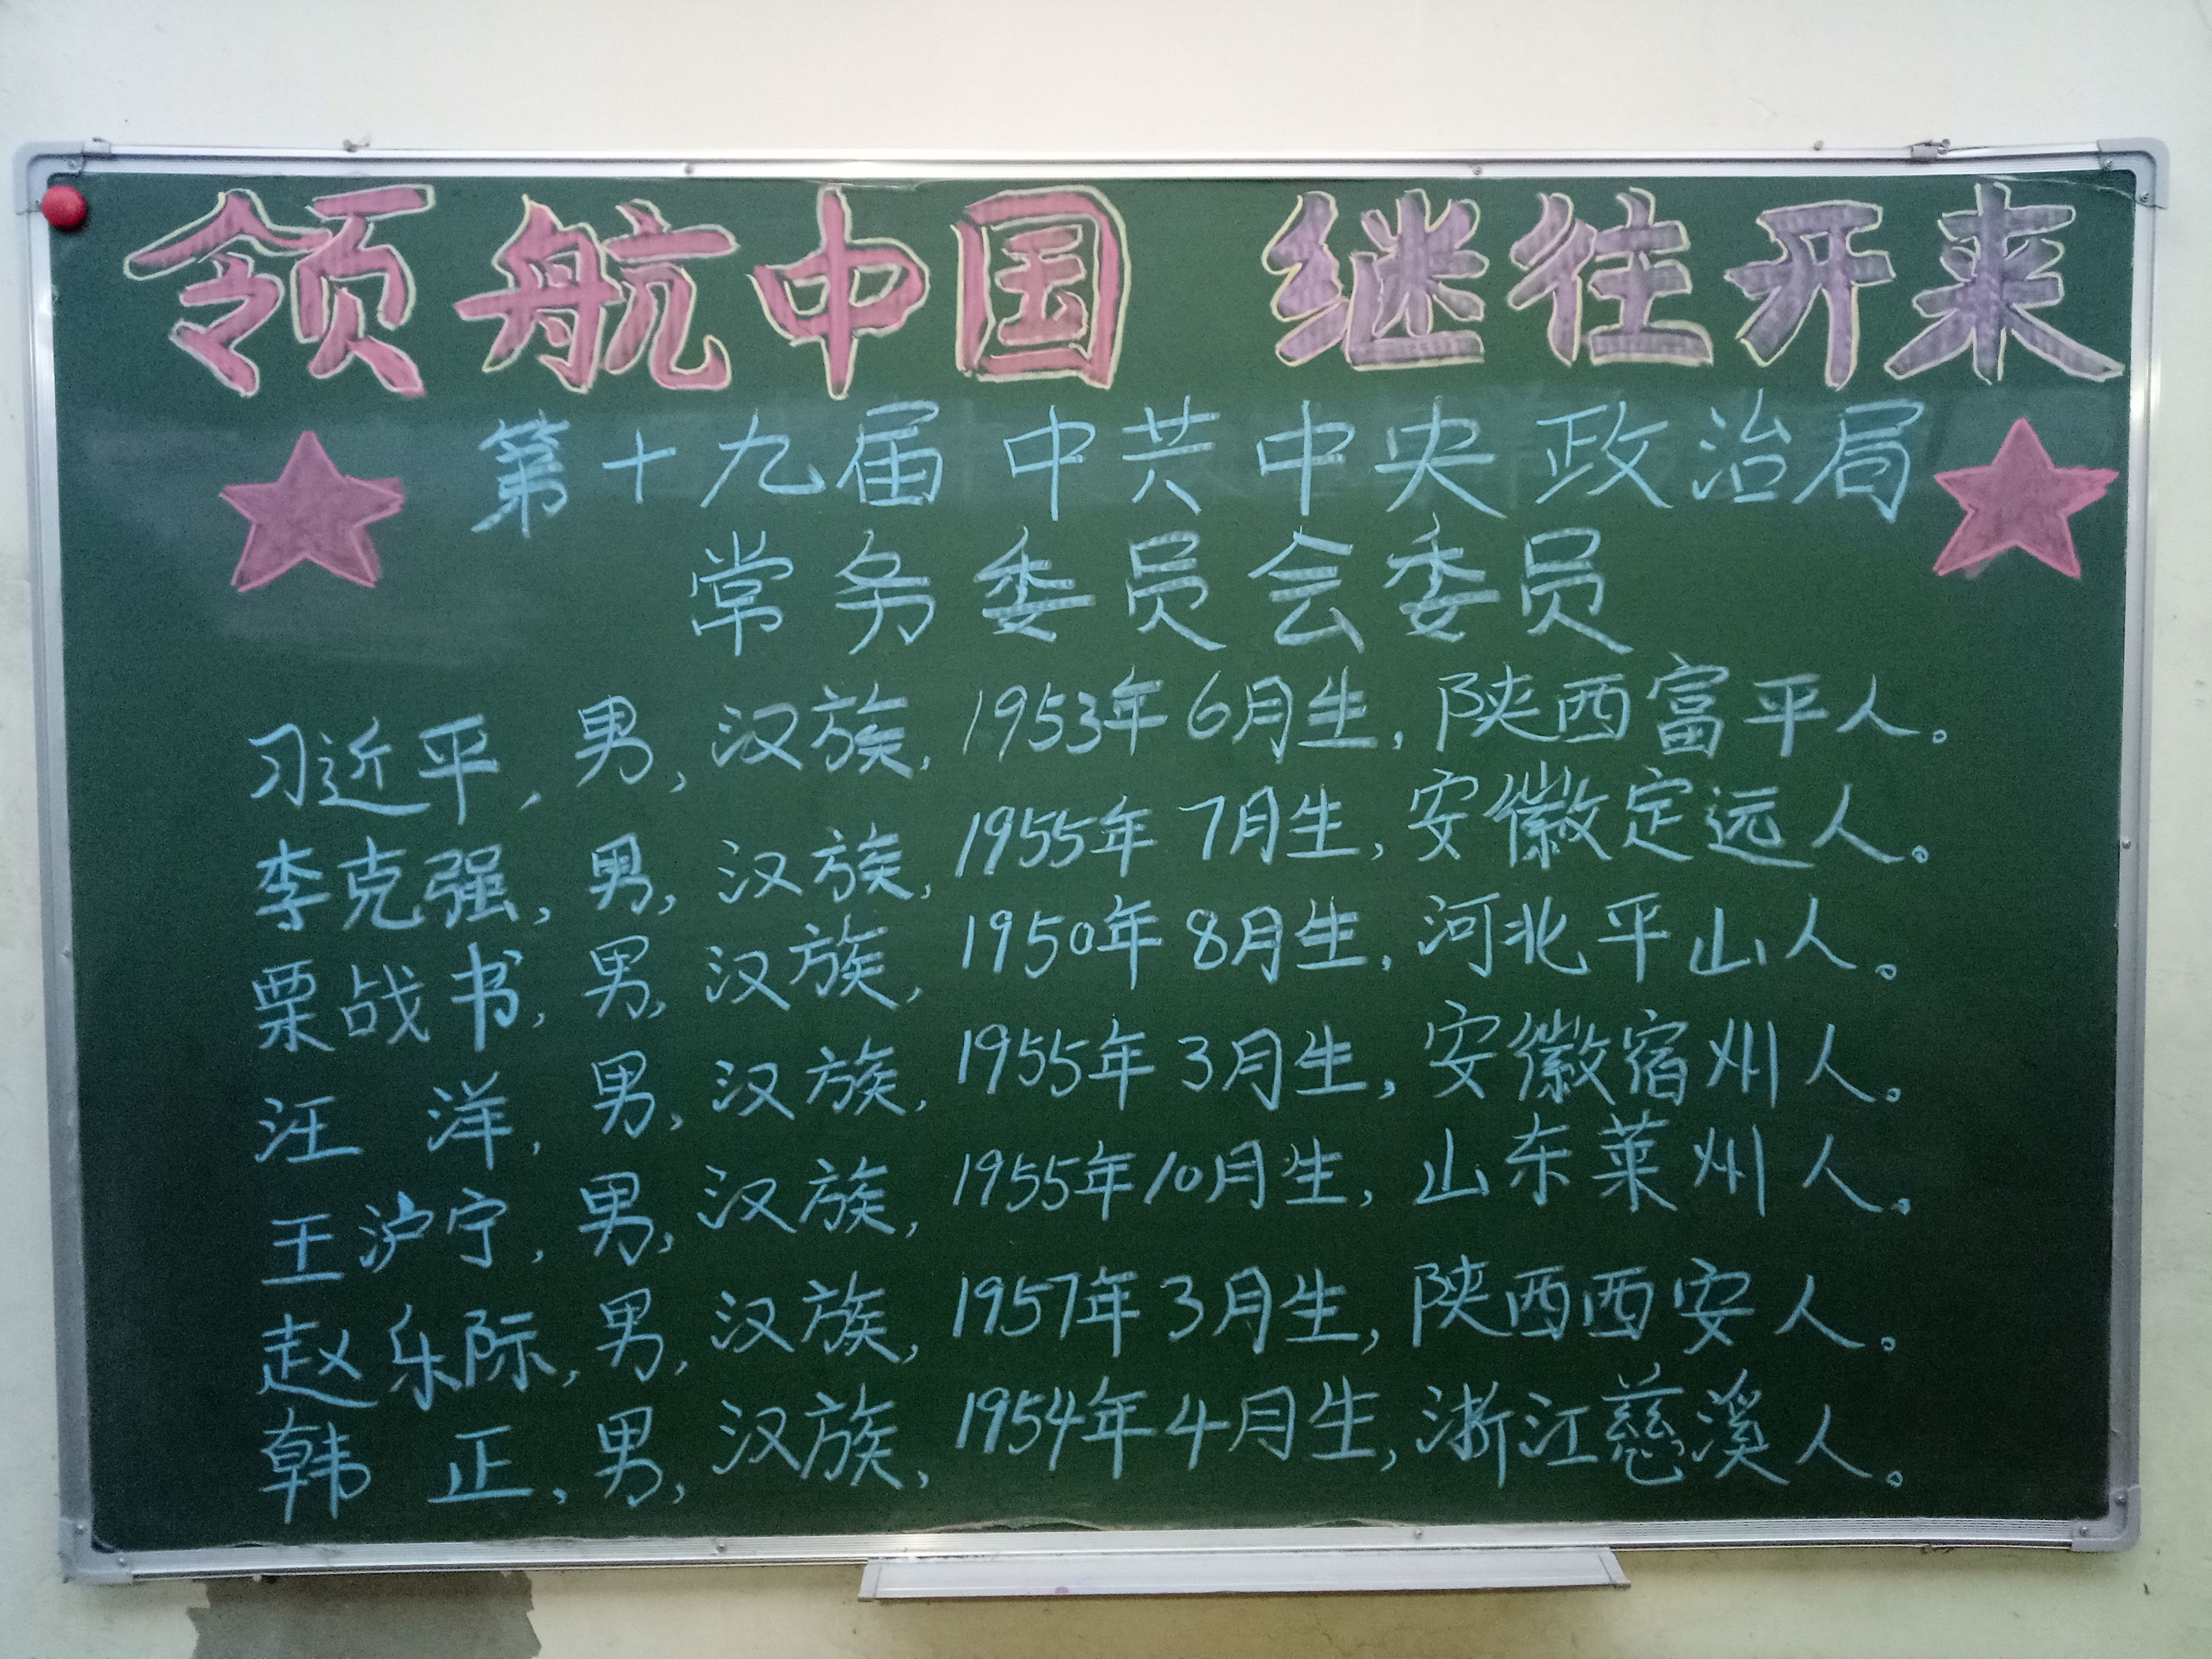 领航中国 继往开来
第十九届中共中央政治局
常务委员会委员
习近平，男，汉族，1953年6月生，陕西富平人。
李克强，男，汉族，1955年7月生，安徽定远人。
栗战书，男，汉族，1950年8月生，河北平山人。
汪 洋，男，汉族，1955年3月生，安徽宿州人。
王沪宁，男，汉族，1955年10月生，山东莱州人。
赵乐际，男，汉族，1957年3月生，陕西西安人。
韩 正，男，汉族，1954年4月生，浙江慈溪人。